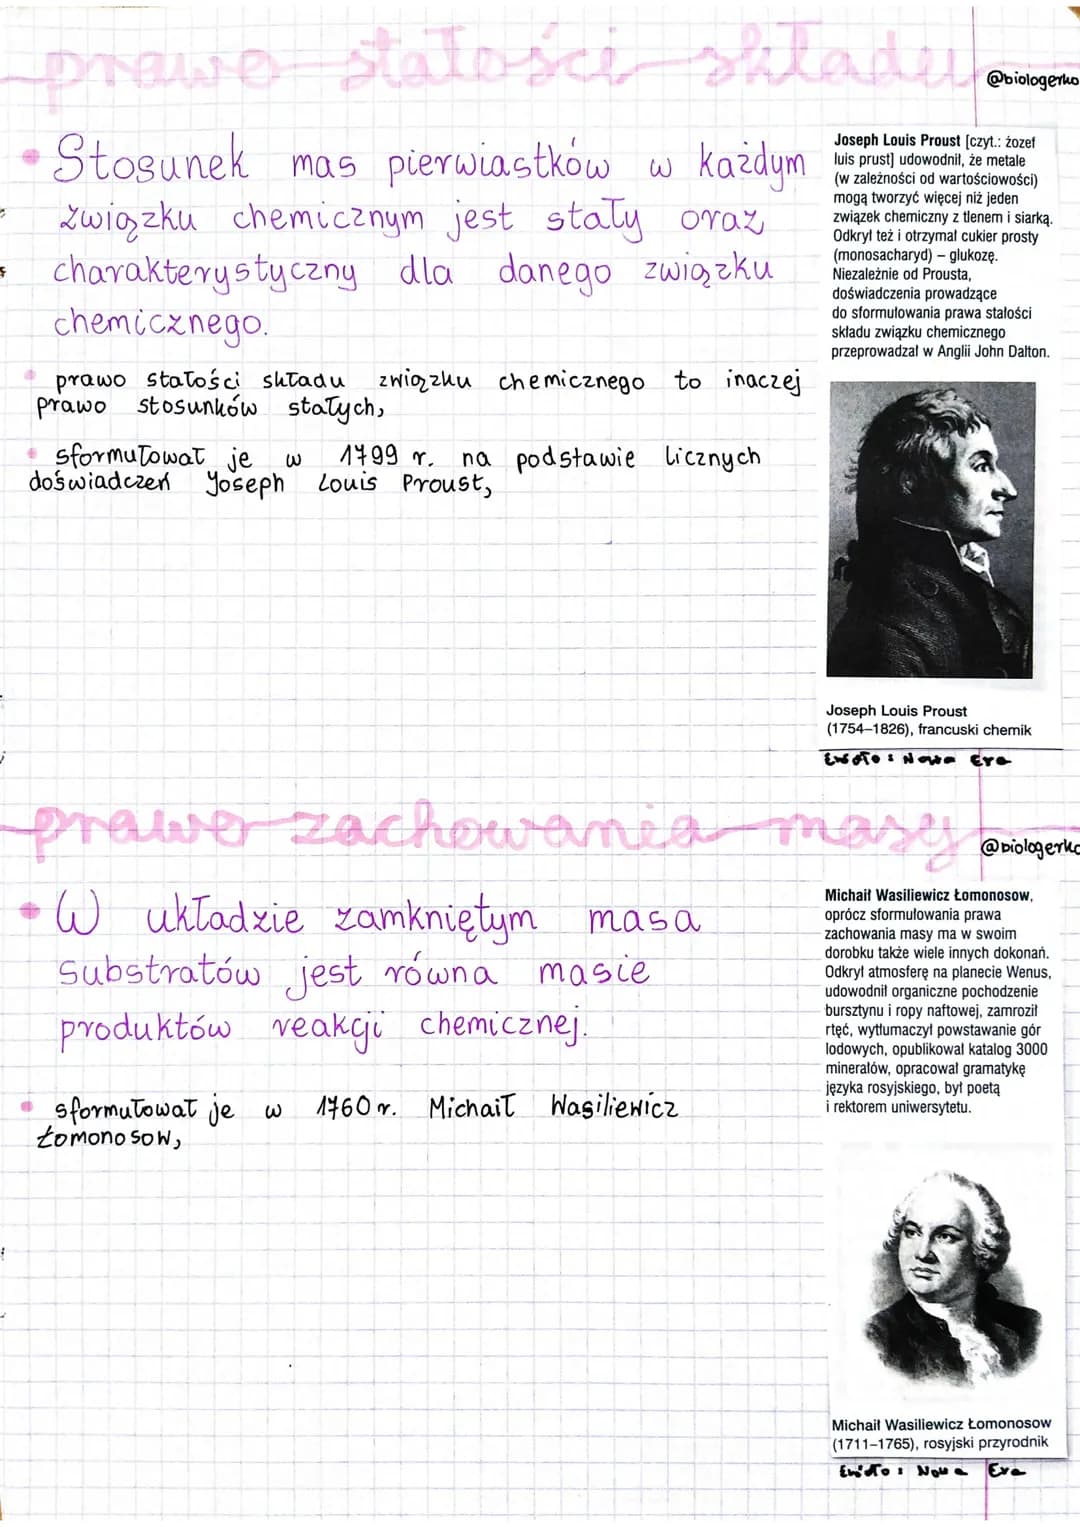 prawo stałości składu
@biologerko
• Stosunek mas pierwiastków w każdym
związku chemicznym jest stały oraz
charakterystyczny dla danego związku
chemicznego.
• prawo stałości składu związku chemicznego to inaczej
prawo stosunków stałych,
• sformułował je w 1799 r. na podstawie licznych
doświadczeń Joseph Louis Proust,
Joseph Louis Proust [czyt.: żozef
luis prust] udowodnił, że metale
(w zależności od wartościowości)
mogą tworzyć więcej niż jeden
związek chemiczny z tlenem i siarką.
Odkrył też i otrzymał cukier prosty
(monosacharyd) – glukozę.
Niezależnie od Prousta,
doświadczenia prowadzące
do sformułowania prawa stałości
składu związku chemicznego
przeprowadzał w Anglii John Dalton.
Joseph Louis Proust
(1754–1826), francuski chemik
Nowa Era
prawo zachowania masy
@biologerko
• W układzie zamkniętym masa
substratów jest równa masie
produktów reakcji chemicznej.
• sformułował je w 1760 r. Michaił Wasiliewicz
Łomonosow,
Michaił Wasiliewicz Łomonosow,
oprócz sformułowania prawa
zachowania masy ma w swoim
dorobku także wiele innych dokonań.
Odkrył atmosferę na planecie Wenus,
udowodnił organiczne pochodzenie
bursztynu i ropy naftowej, zamroził
rtęć, wytłumaczył powstawanie gór
lodowych, opublikował katalog 3000
minerałów, opracował gramatykę
języka rosyjskiego, był poetą
i rektorem uniwersytetu.
Michaił Wasiliewicz Łomonosow
(1711–1765), rosyjski przyrodnik
Nowa Era